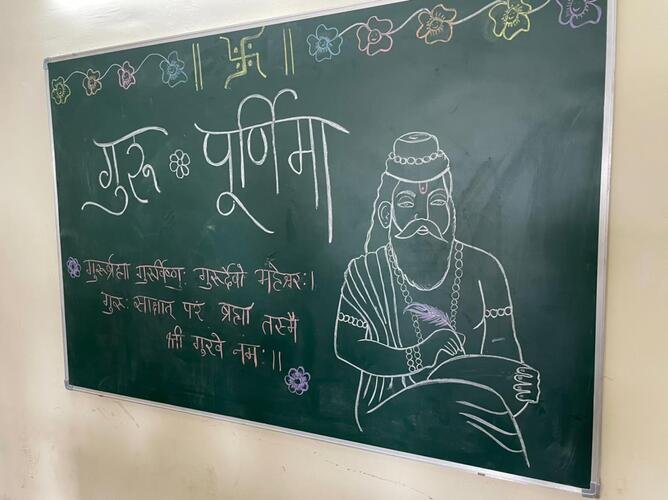 गुरू पूर्णिमा
गुरुर्ब्रह्मा गुरुर्विष्णुः गुरुर्देवो महेश्वरः।
गुरुः साक्षात् परं ब्रह्मा तस्मै
श्री गुरवे नमः।।